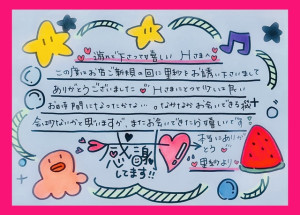 遊んで下さって嬉しい Hさまへ
この度はお当ご新規の回に里紗をお誘い下さいまして
ありがとうございました Hさまにとって少しでも良い
お時間になったかな… なかなかお会いできる機
会は少ないかと思いますが、またお会いできたら嬉しいです!!
感謝
してます!!
本当にあり
がとう
里紗より